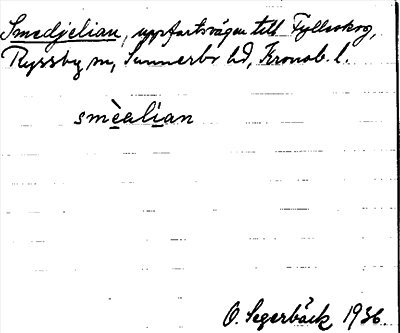 Smedjelian, uppfartsvägen till Fylleskog,
Ryssby sn, Sunnerbo hd, Kronob. l.
smèalian
O. Segerbäck 1936